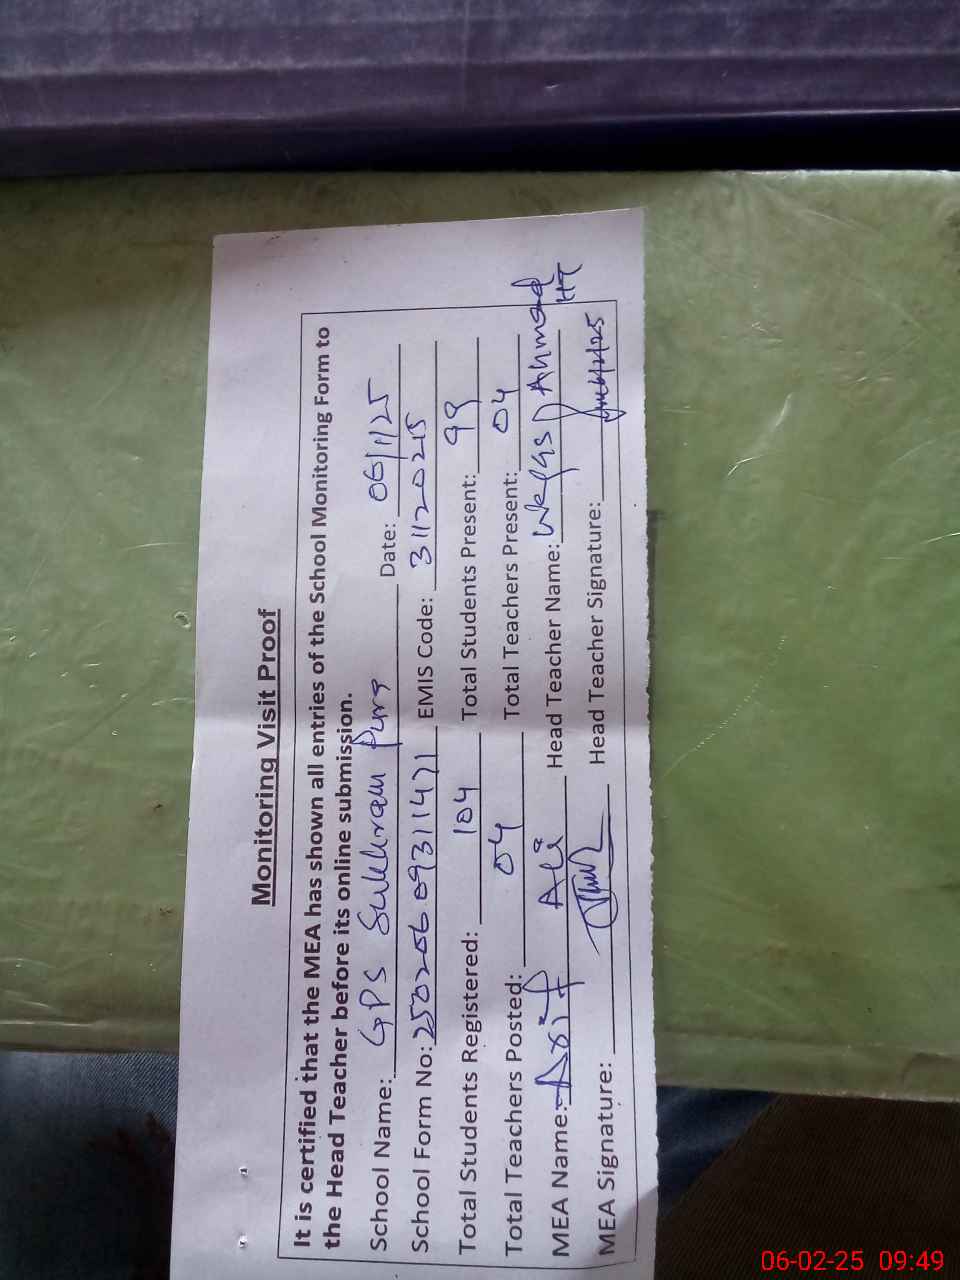 Monitoring Visit Proof
It is certified that the MEA has shown all entries of the School Monitoring Form to
the Head Teacher before its online submission.
School Name: GPS Sukhram Pura Date: 06/1/25
School Form No: 250206 09311471 EMIS Code: 31120215
Total Students Registered: 104 Total Students Present: 99
Total Teachers Posted: 04 Total Teachers Present: 04
MEA Name: Arif Ali Head Teacher Name: Waqas Ahmad
HT
MEA Signature: Head Teacher Signature:
06-02-25 09:49